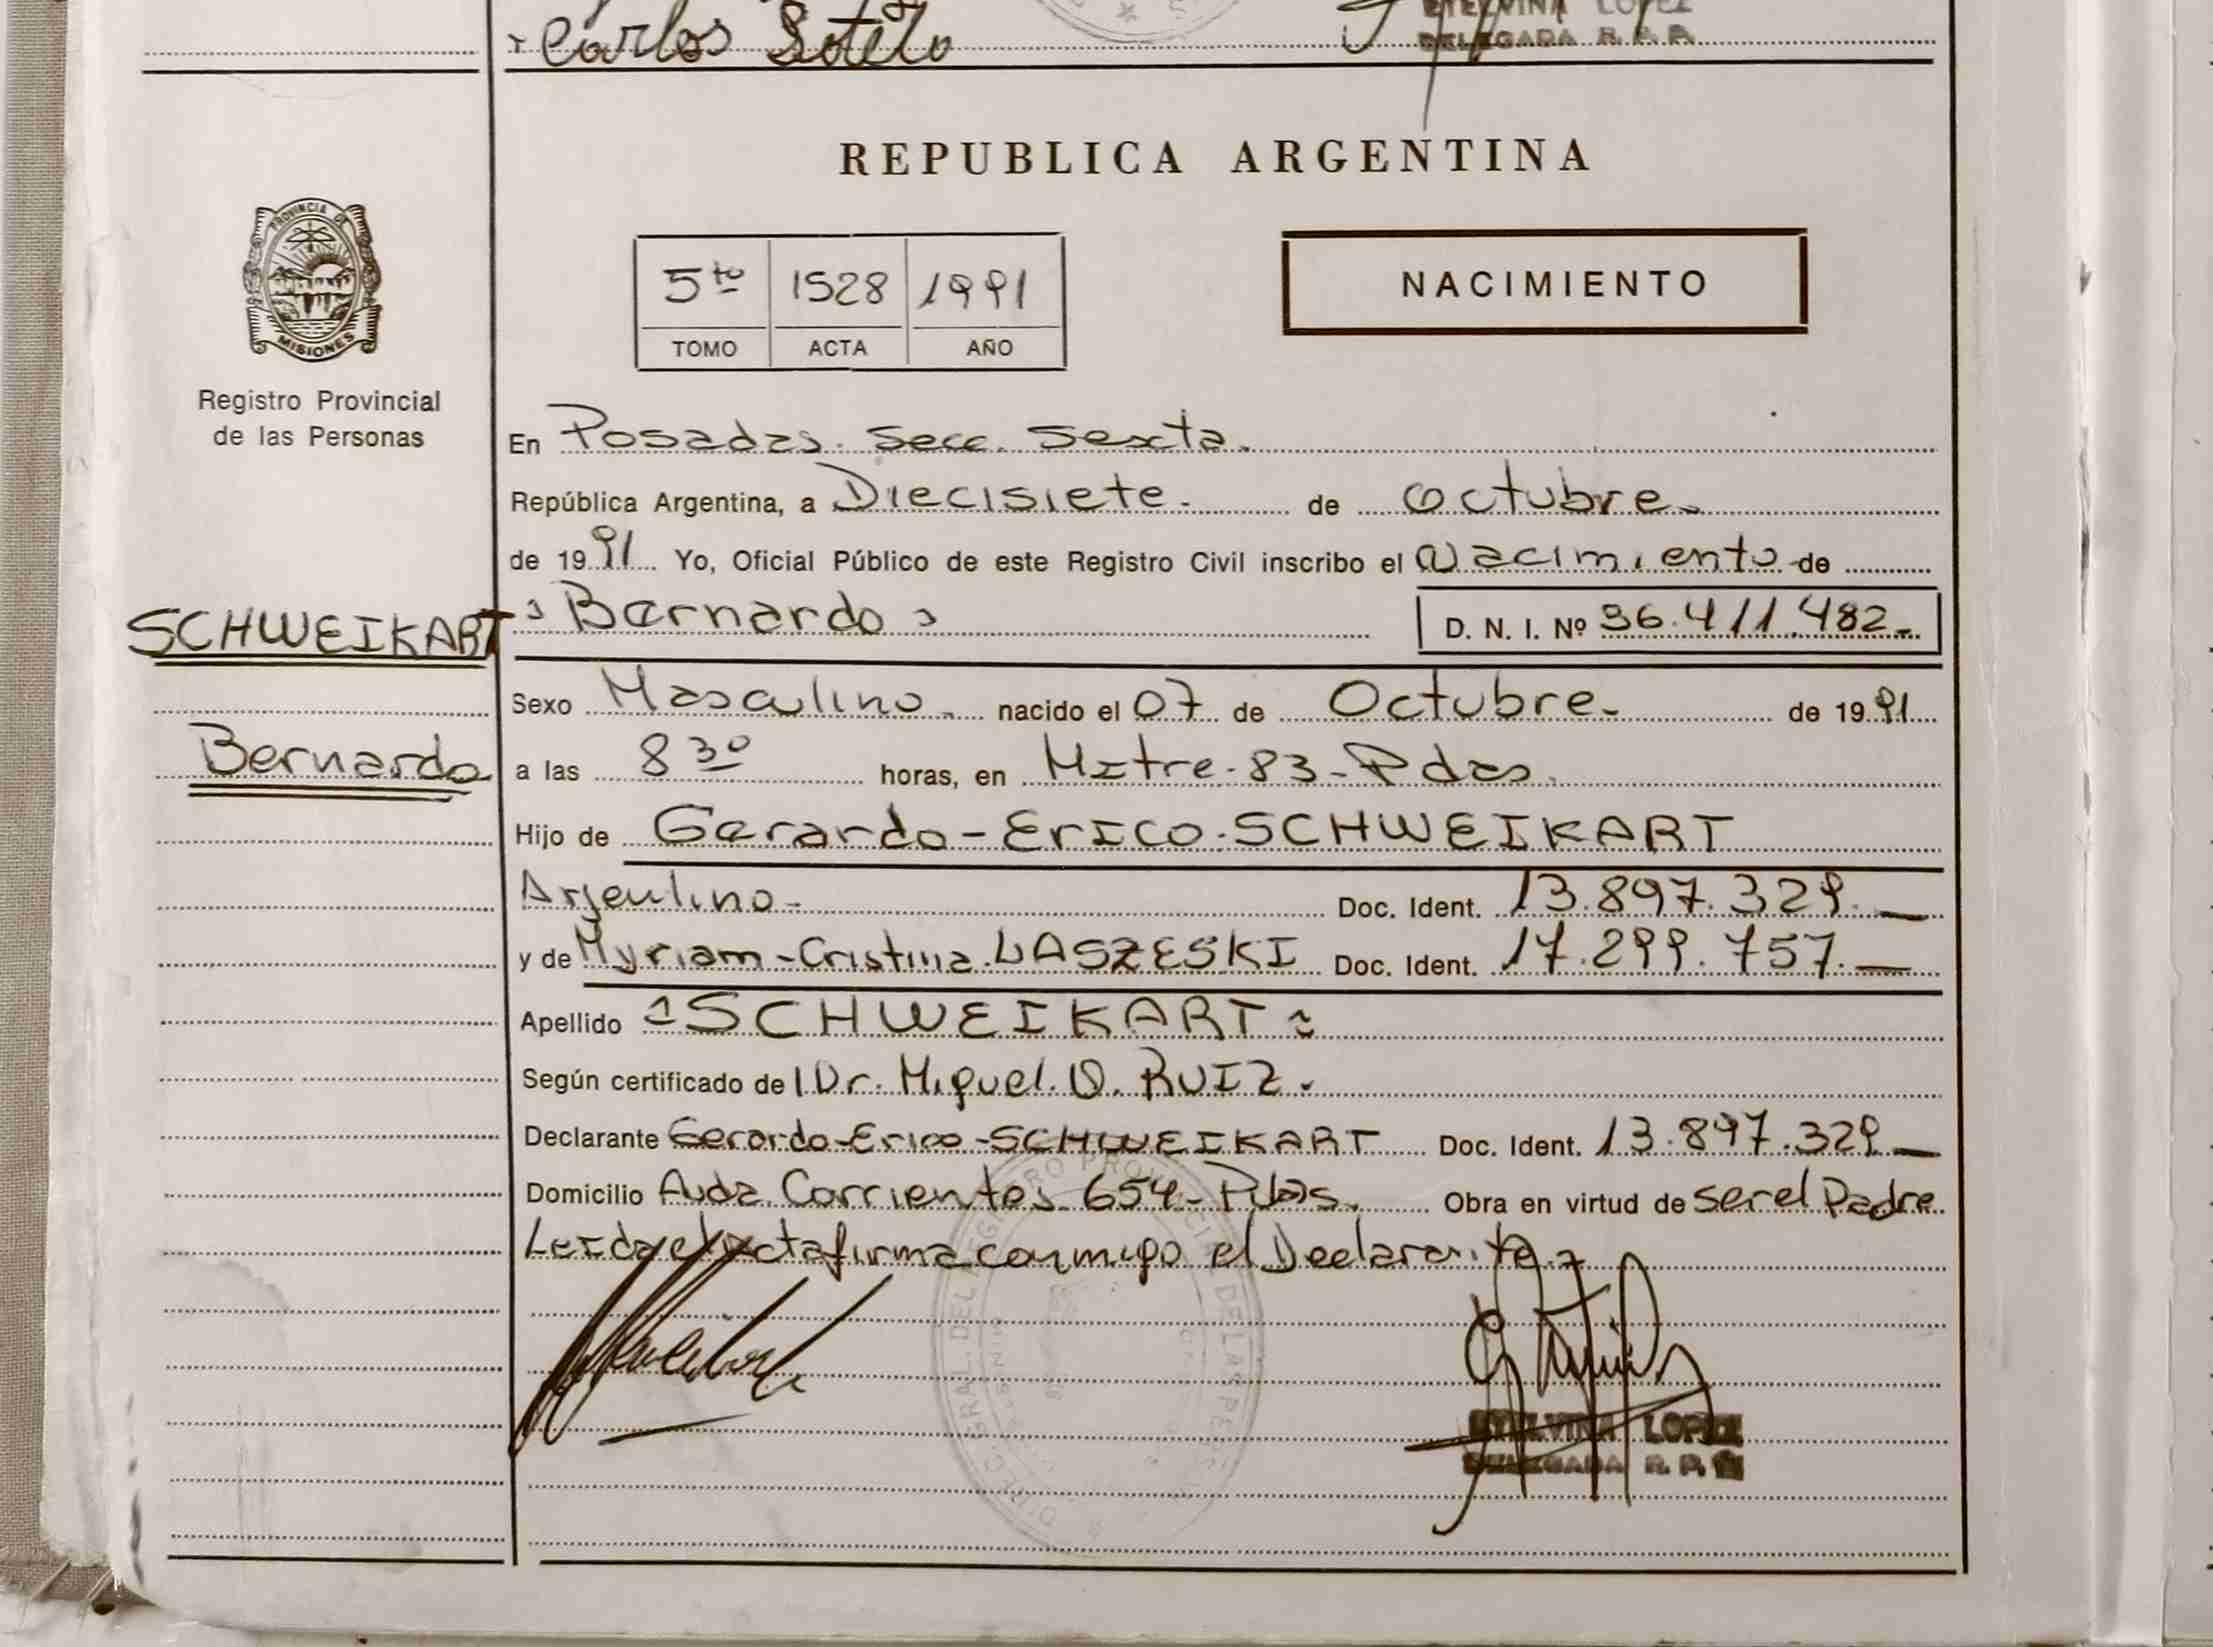 Carlos Sotelo
ETELVINA LOPEZ
DELEGADA R. P. P.
REPUBLICA ARGENTINA
PROVINCIA DE
MISIONES
Registro Provincial
de las Personas
5to 1528 1991
TOMO ACTA AÑO
NACIMIENTO
En Posadas. Secc. Sexta.
República Argentina, a Diecisiete. de Octubre.
de 1991 Yo, Oficial Público de este Registro Civil inscribo el Nacimiento de
SCHWEIKART
Bernardo
D. N. I. Nº 36.411.482-
Sexo Masculino. nacido el 07 de Octubre. de 1991
Bernardo
a las 8 30 horas, en Mitre-83-Pdas.
Hijo de Gerardo-Erico-SCHWEIKART
Argentino- Doc. Ident. 13.897.329.-
y de Myriam-Cristina LASZESKI Doc. Ident. 17.299.757.-
Apellido SCHWEIKART
Según certificado del Dr. Miguel. O. RUIZ.
Declarante Gerardo-Erico-SCHWEIKART Doc. Ident. 13.897.329-
Domicilio Avda. Corrientes 654-Pdas. Obra en virtud de ser el Padre
Leida el acta firma conmigo el Declarante.
DIREC. GRAL. DEL REGISTRO PROVINCIAL DE LAS PERSONAS
ETELVINA LOPEZ
DELEGADA R. P. P.